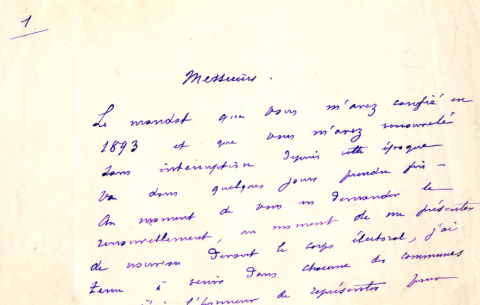 1
Messieurs.
Le mandat que vous m'avez confié en
1893 et que vous m'avez renouvelé
sans interruption depuis cette époque
va dans quelques jours prendre fin -
Au moment de vous en demander le
renouvellement, au moment de me présenter
de nouveau devant le corps électoral, j'ai
tenu à venir dans chacune des communes
l'honneur de représenter pour